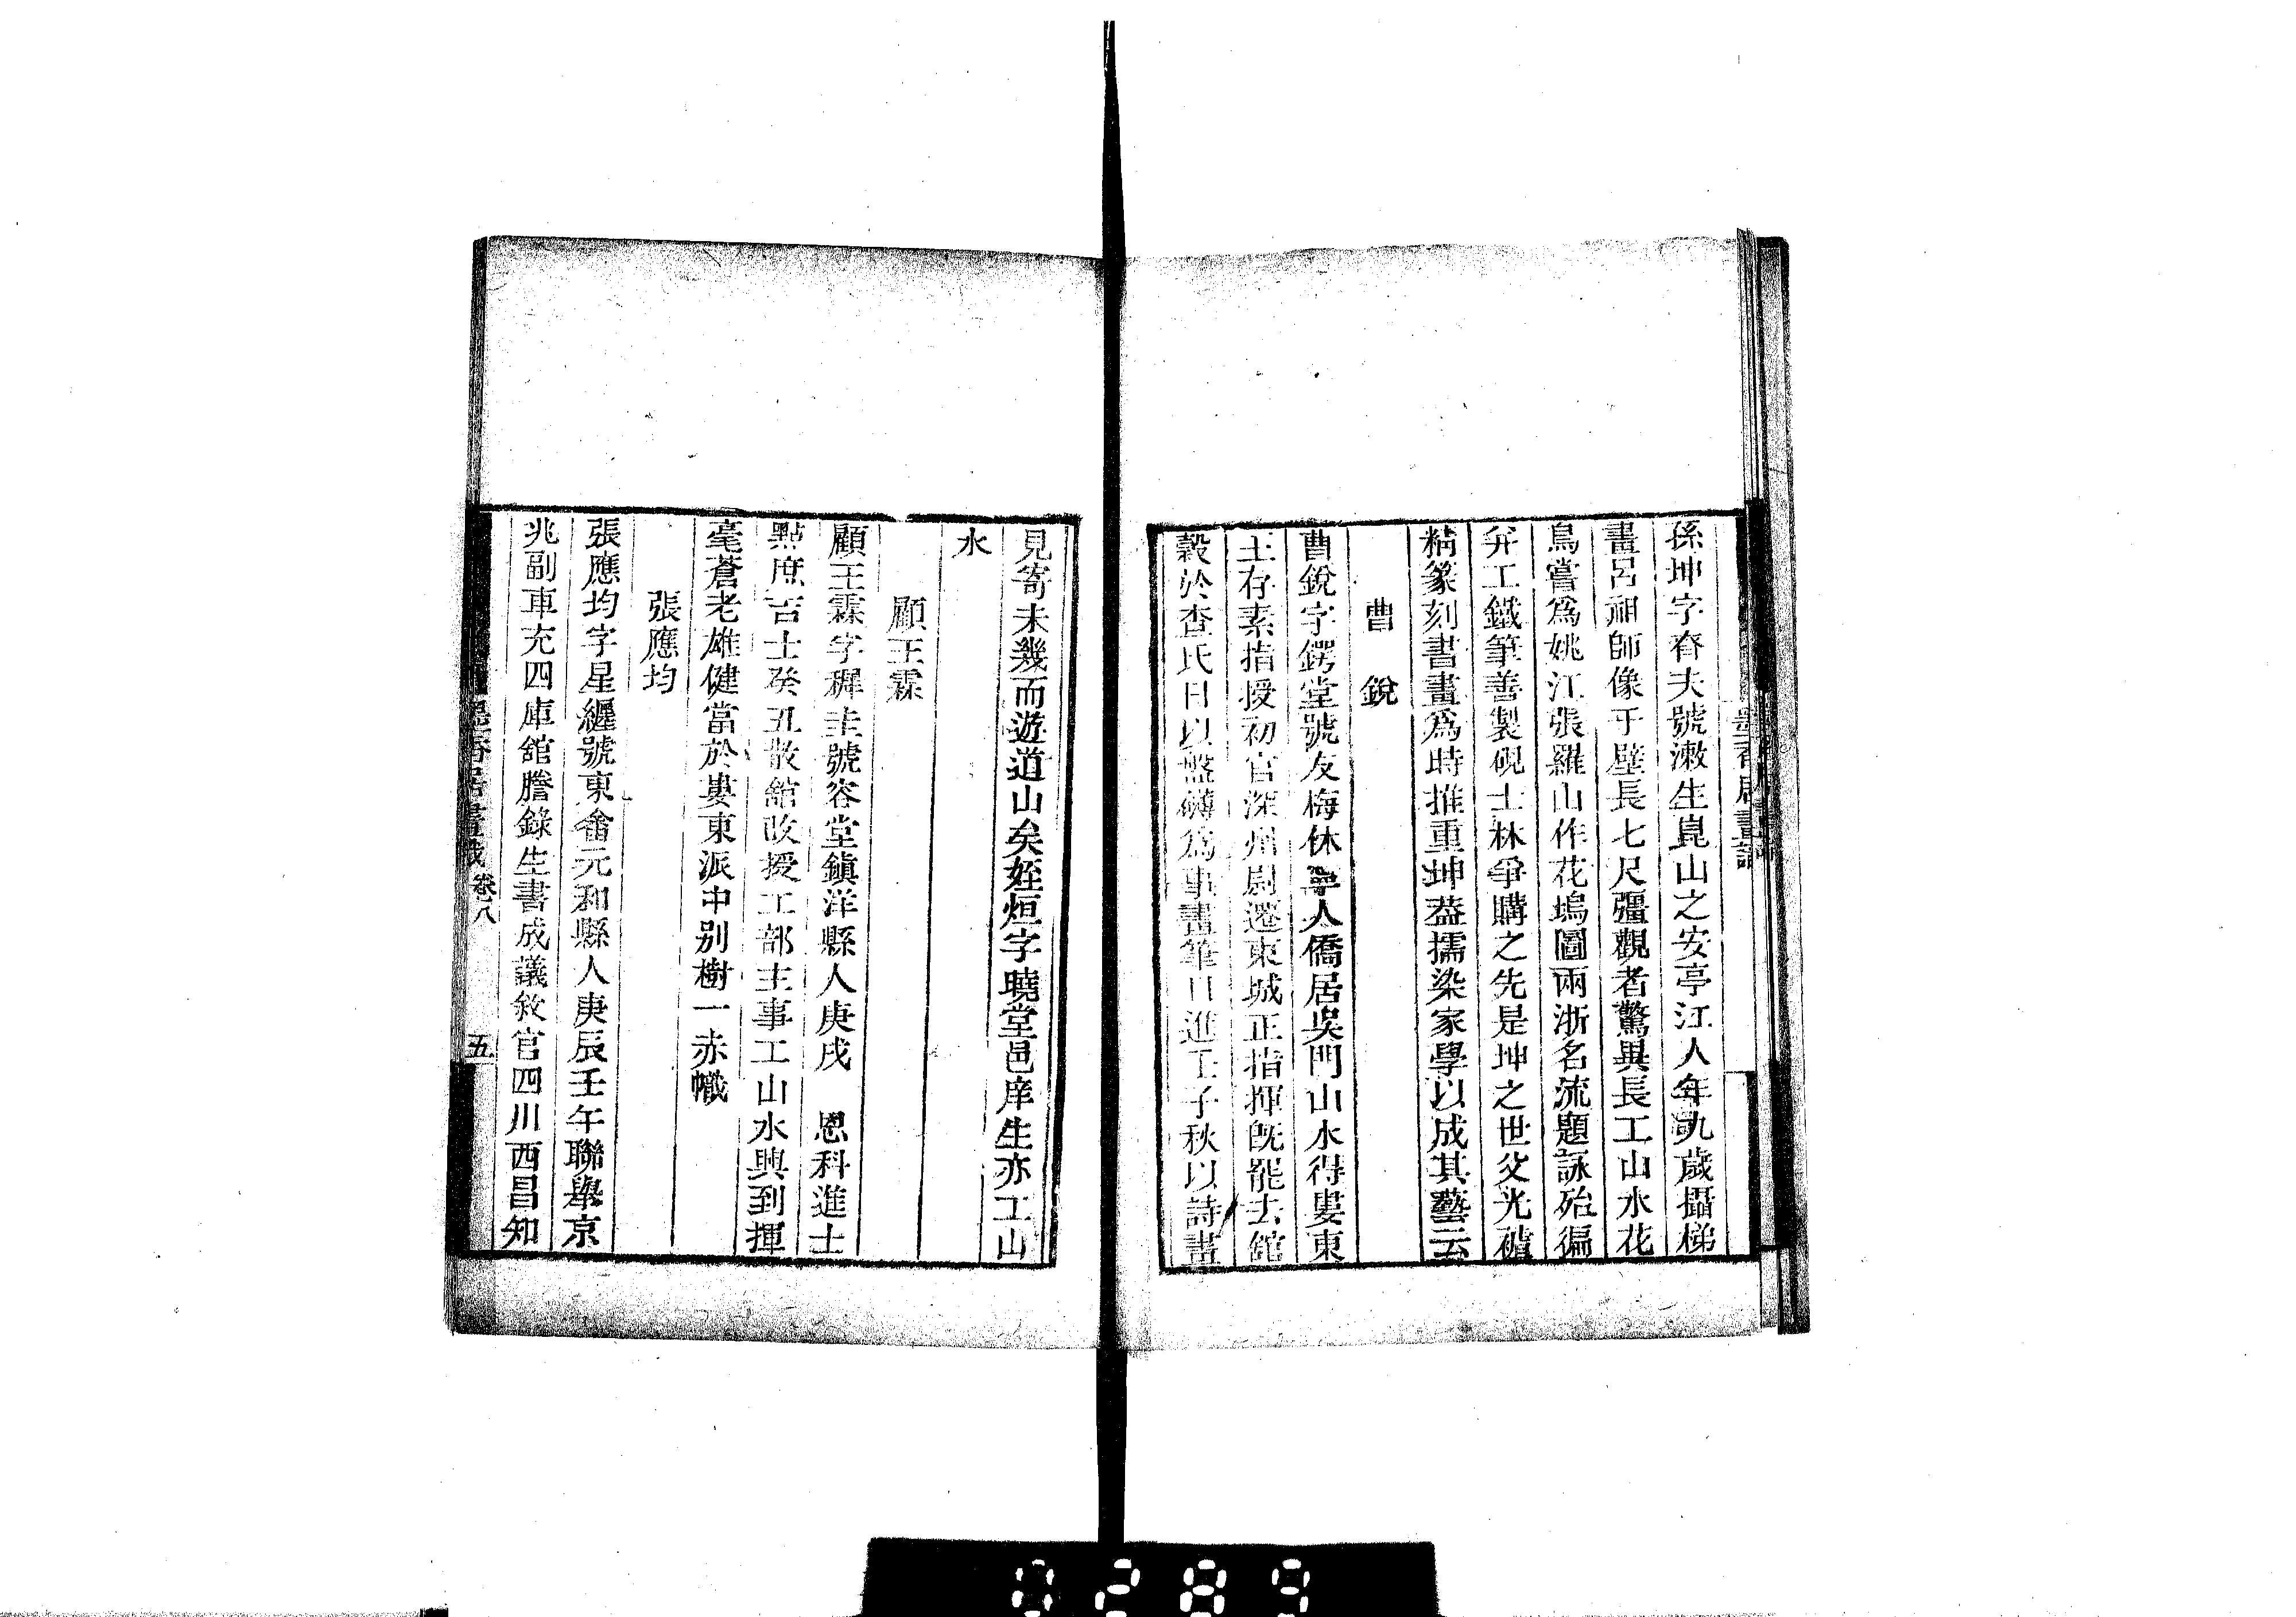 孫坤字脊夫號漱生崑山之安亭江人年九歲攝梯
畫呂祖師像于壁長七尺彊觀者驚異長工山水花
鳥嘗爲姚江張羅山作花塢圖兩浙名流題詠殆徧
弁工鐵筆善製硯士林爭購之先是坤之世父光
精篆刻書畫爲時推重坤葢擩染家學以成其藝云
曹銳
曹銳字鍔堂號友梅休寧人僑居吳門山水得婁東
王存素指授初官深州尉遷東城正指揮旣罷去舘
穀於查氏日以盤礴爲事畫筆日進壬子秋以詩畫
見寄未幾而遊道山矣姪烜字曉堂邑庠生亦工山
水
顧王霖
顧王霖字穉圭號容堂鎭洋縣人庚戌 恩科進士
點庶吉士癸丑散舘改授工部主事工山水興到揮
毫蒼老雄健當於婁東派中別樹一赤幟
張應均
張應均字星纏號東畬元和縣人庚辰壬午聯舉京
兆副車充四庫舘謄錄生書成議敘官四川西昌知
墨香居畫識 卷八 五
0289